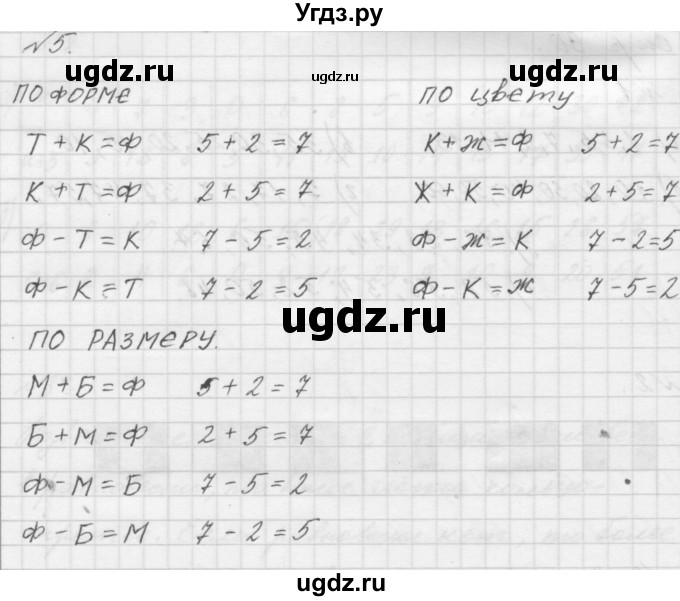 Угдз.ру
№5.
ugdz.ru ugdz.ru ugdz.ru
ПО ФОРМЕ
Т + К = Ф 5 + 2 = 7
К + Т = Ф 2 + 5 = 7
Ф - Т = К 7 - 5 = 2
Ф - К = Т 7 - 2 = 5
ПО ЦВЕТУ
К + Ж = Ф 5 + 2 = 7
Ж + К = Ф 2 + 5 = 7
Ф - Ж = К 7 - 2 = 5
Ф - К = Ж 7 - 5 = 2
ugdz.ru
ПО РАЗМЕРУ.
М + Б = Ф 5 + 2 = 7
Б + М = Ф 2 + 5 = 7
Ф - М = Б 7 - 5 = 2
Ф - Б = М 7 - 2 = 5
ugdz.ru
ugdz.ru